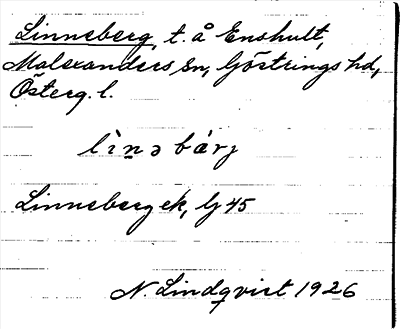 Linneberg, t. å Enshult,
Malexanders sn, Göstrings hd,
Österg. l.
lìn̠ə bárj
Linneberg ek, Lj 45
N. Lindqvist 1926